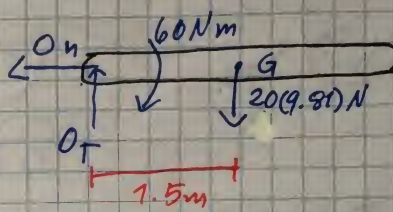 On 60Nm
G
20(9.81)N
OT
1.5m